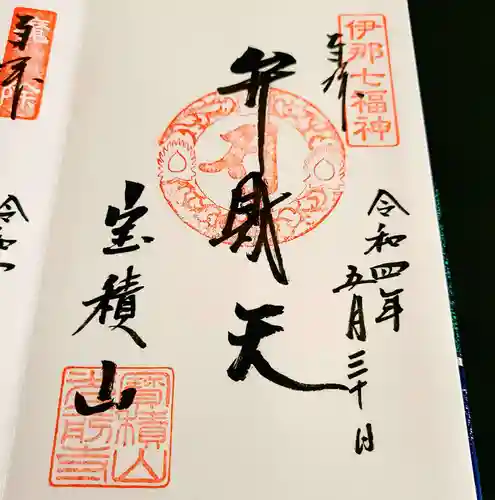 伊那七福神
奉拝
令和四年
五月三十日
弁財天
宝積山
寳積山
光前寺
奉拝
令和